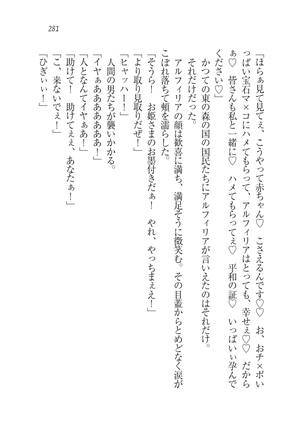 281
「ほらぁ見て見てぇ、こうやって赤ちゃん♡　こさえるんです♡♡　お、おチ×ポい
っぱい宝石マ×コにハメてもらって、アルフィリアはとっても、幸せぇ♡♡　だから
ぁ♡　皆さんも私と一緒に♡　ハメてもらってぇ♡　平和の証♡　いっぱいぃ孕んで
ください♡」
かつての東の森の国の国民たちにアルフィリアが言えたのはそれだけ。
それだけだった。
アルフィリアの顔は歓喜に満ち、満足そうに微笑む。その目蓋からとめどなく涙が
こぼれ落ちて頬を濡らした。
「そうら！　お姫さまのお墨付きだぁ！　やれ、やっちまぇえ！」
「より取り見取りだぜ！」
「ヒャッハー！」
人間の男たちが襲いかかる。
「イヤぁああああああああ！」
「人となんてイヤぁあ！」
「助けて！　助けてぇえ、あなたぁ！」
「こ、来ないでぇ！」
「ひぎぃぃ！」